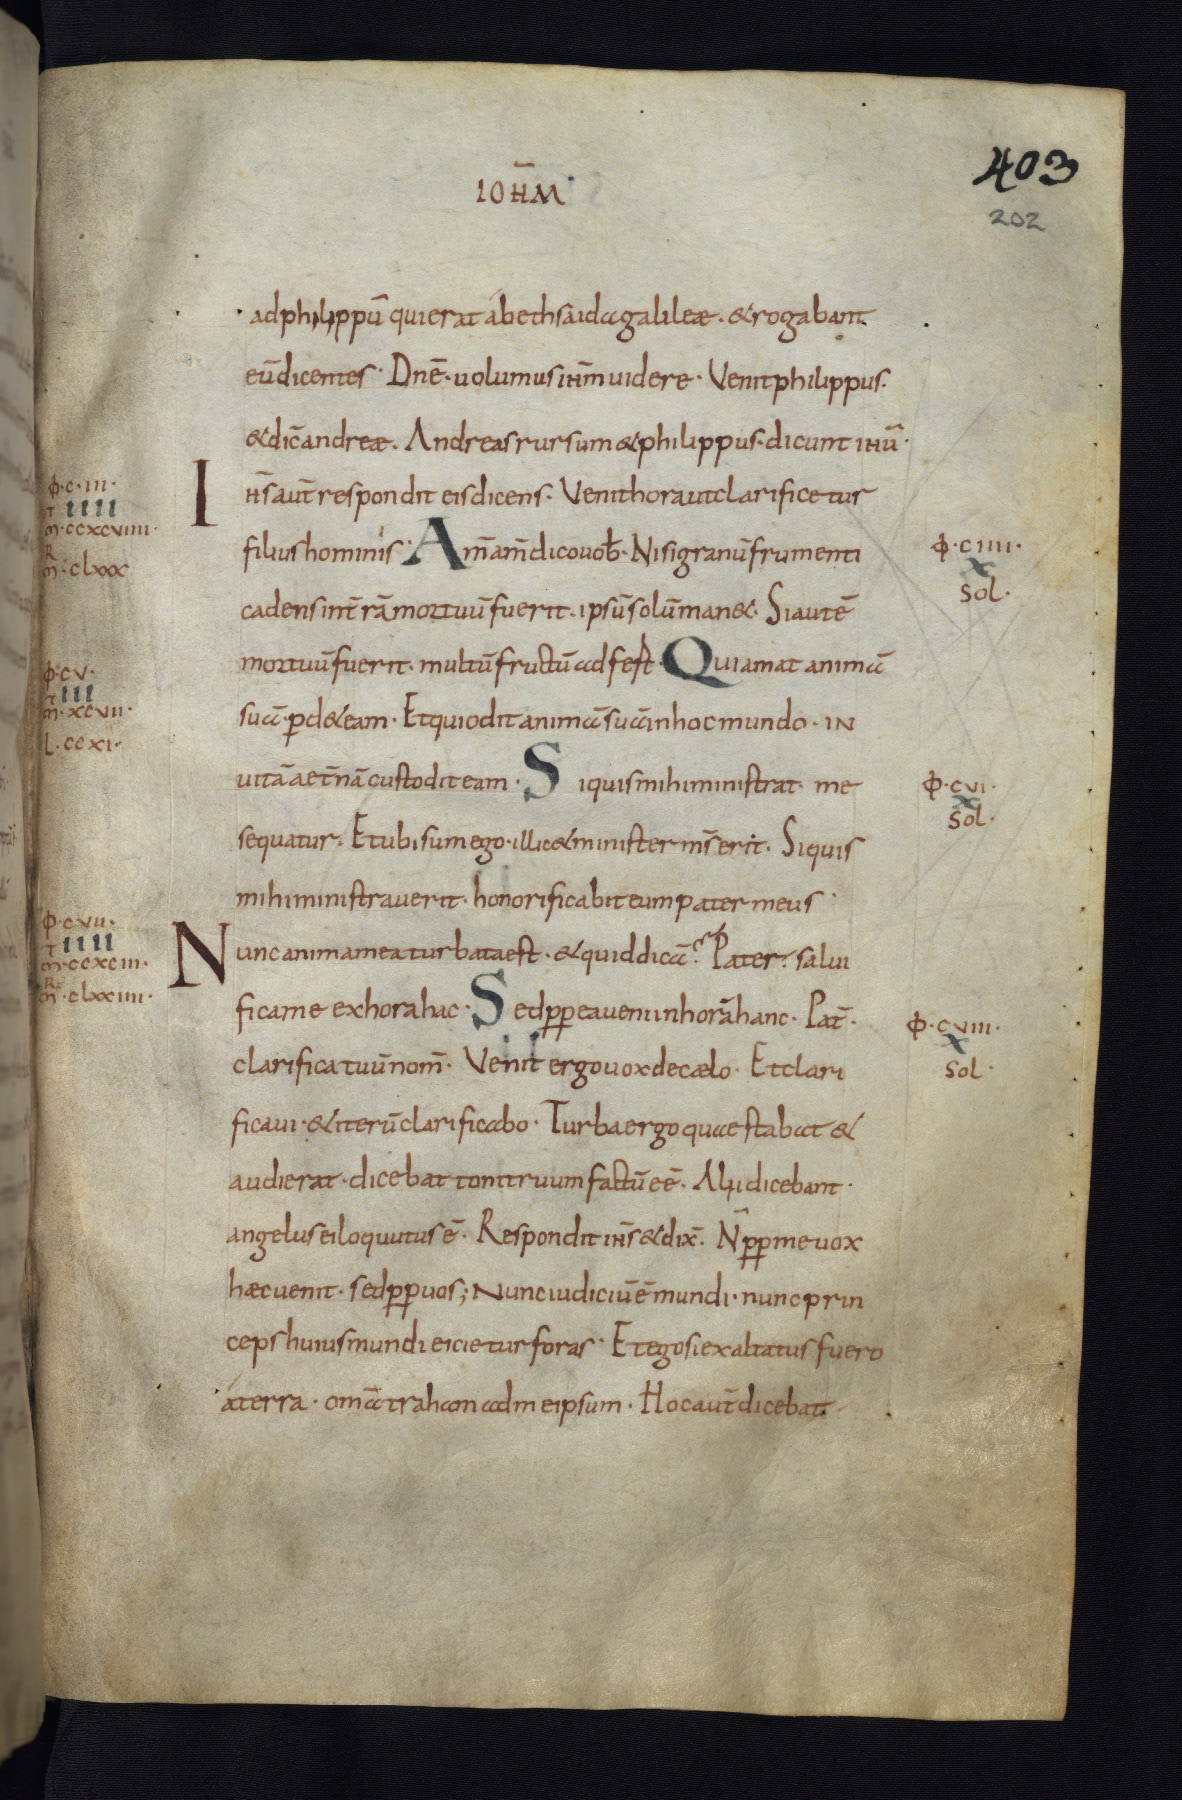 IOHM̄
403
202
ad philippū qui erat a bethsaida galileæ. & rogabant
eū dicentes. Dnē. uolumus ihm̄ uidere. Venit philippus.
& dic̄ andreæ. Andreas rursum & philippus. dicunt ihū.
Ihs̄ aut̄ respondit eis dicens. Venit hora ut clarificetur
filius hominis. Am̄ am̄ dico uob̄. Nisi granū frumenti
cadens in t̄rā mortuū fuerit. ipsū solū man&. Si autē
mortuū fuerit. multū fructū adfert. Qui amat animā
suā. pd&eam. Et qui odit animā suā in hoc mundo. IN
uitā aet̄nā custodit eam. Si quis mihi ministrat. me
sequatur. Et ubi sum ego. illic & minister ms̄ erit. Si quis
mihi ministrauerit. honorificabit eum pater meus
Nunc anima mea turbata est. & quid dicā? Pater. salui
fica me ex hora hac. Sed ppea ueni in horā hanc. Pat̄.
clarifica tuū nom̄. Venit ergo uox de cælo. Et clari
ficaui. & iterū clarificabo. Turba ergo quae stabat &
audierat. dicebat tonitruum factū eē. Alii dicebant.
angelus ei loquutus ē. Respondit ihs̄ & dix̄. N̄ pp me uox
hæc uenit. sed pp uos; Nunc iudiciū ē mundi. nunc prin
ceps huius mundi eicietur foras. Et ego si exaltatus fuero
a terra. omā traham ad me ipsum. Hoc aut̄ dicebat
ϕ.c.iii.
IIII
m̄.ccxcviiii.
R
m̄.clxxx
ϕ.ciiii.
x
sol.
ϕ.cv.
III
m̄.xcvii.
L.ccxi.
ϕ.cvi.
x
sol.
ϕ.cvii.
IIII
m̄.ccxciii.
R
m̄.clxxiiii.
ϕ.cviii.
x
sol.